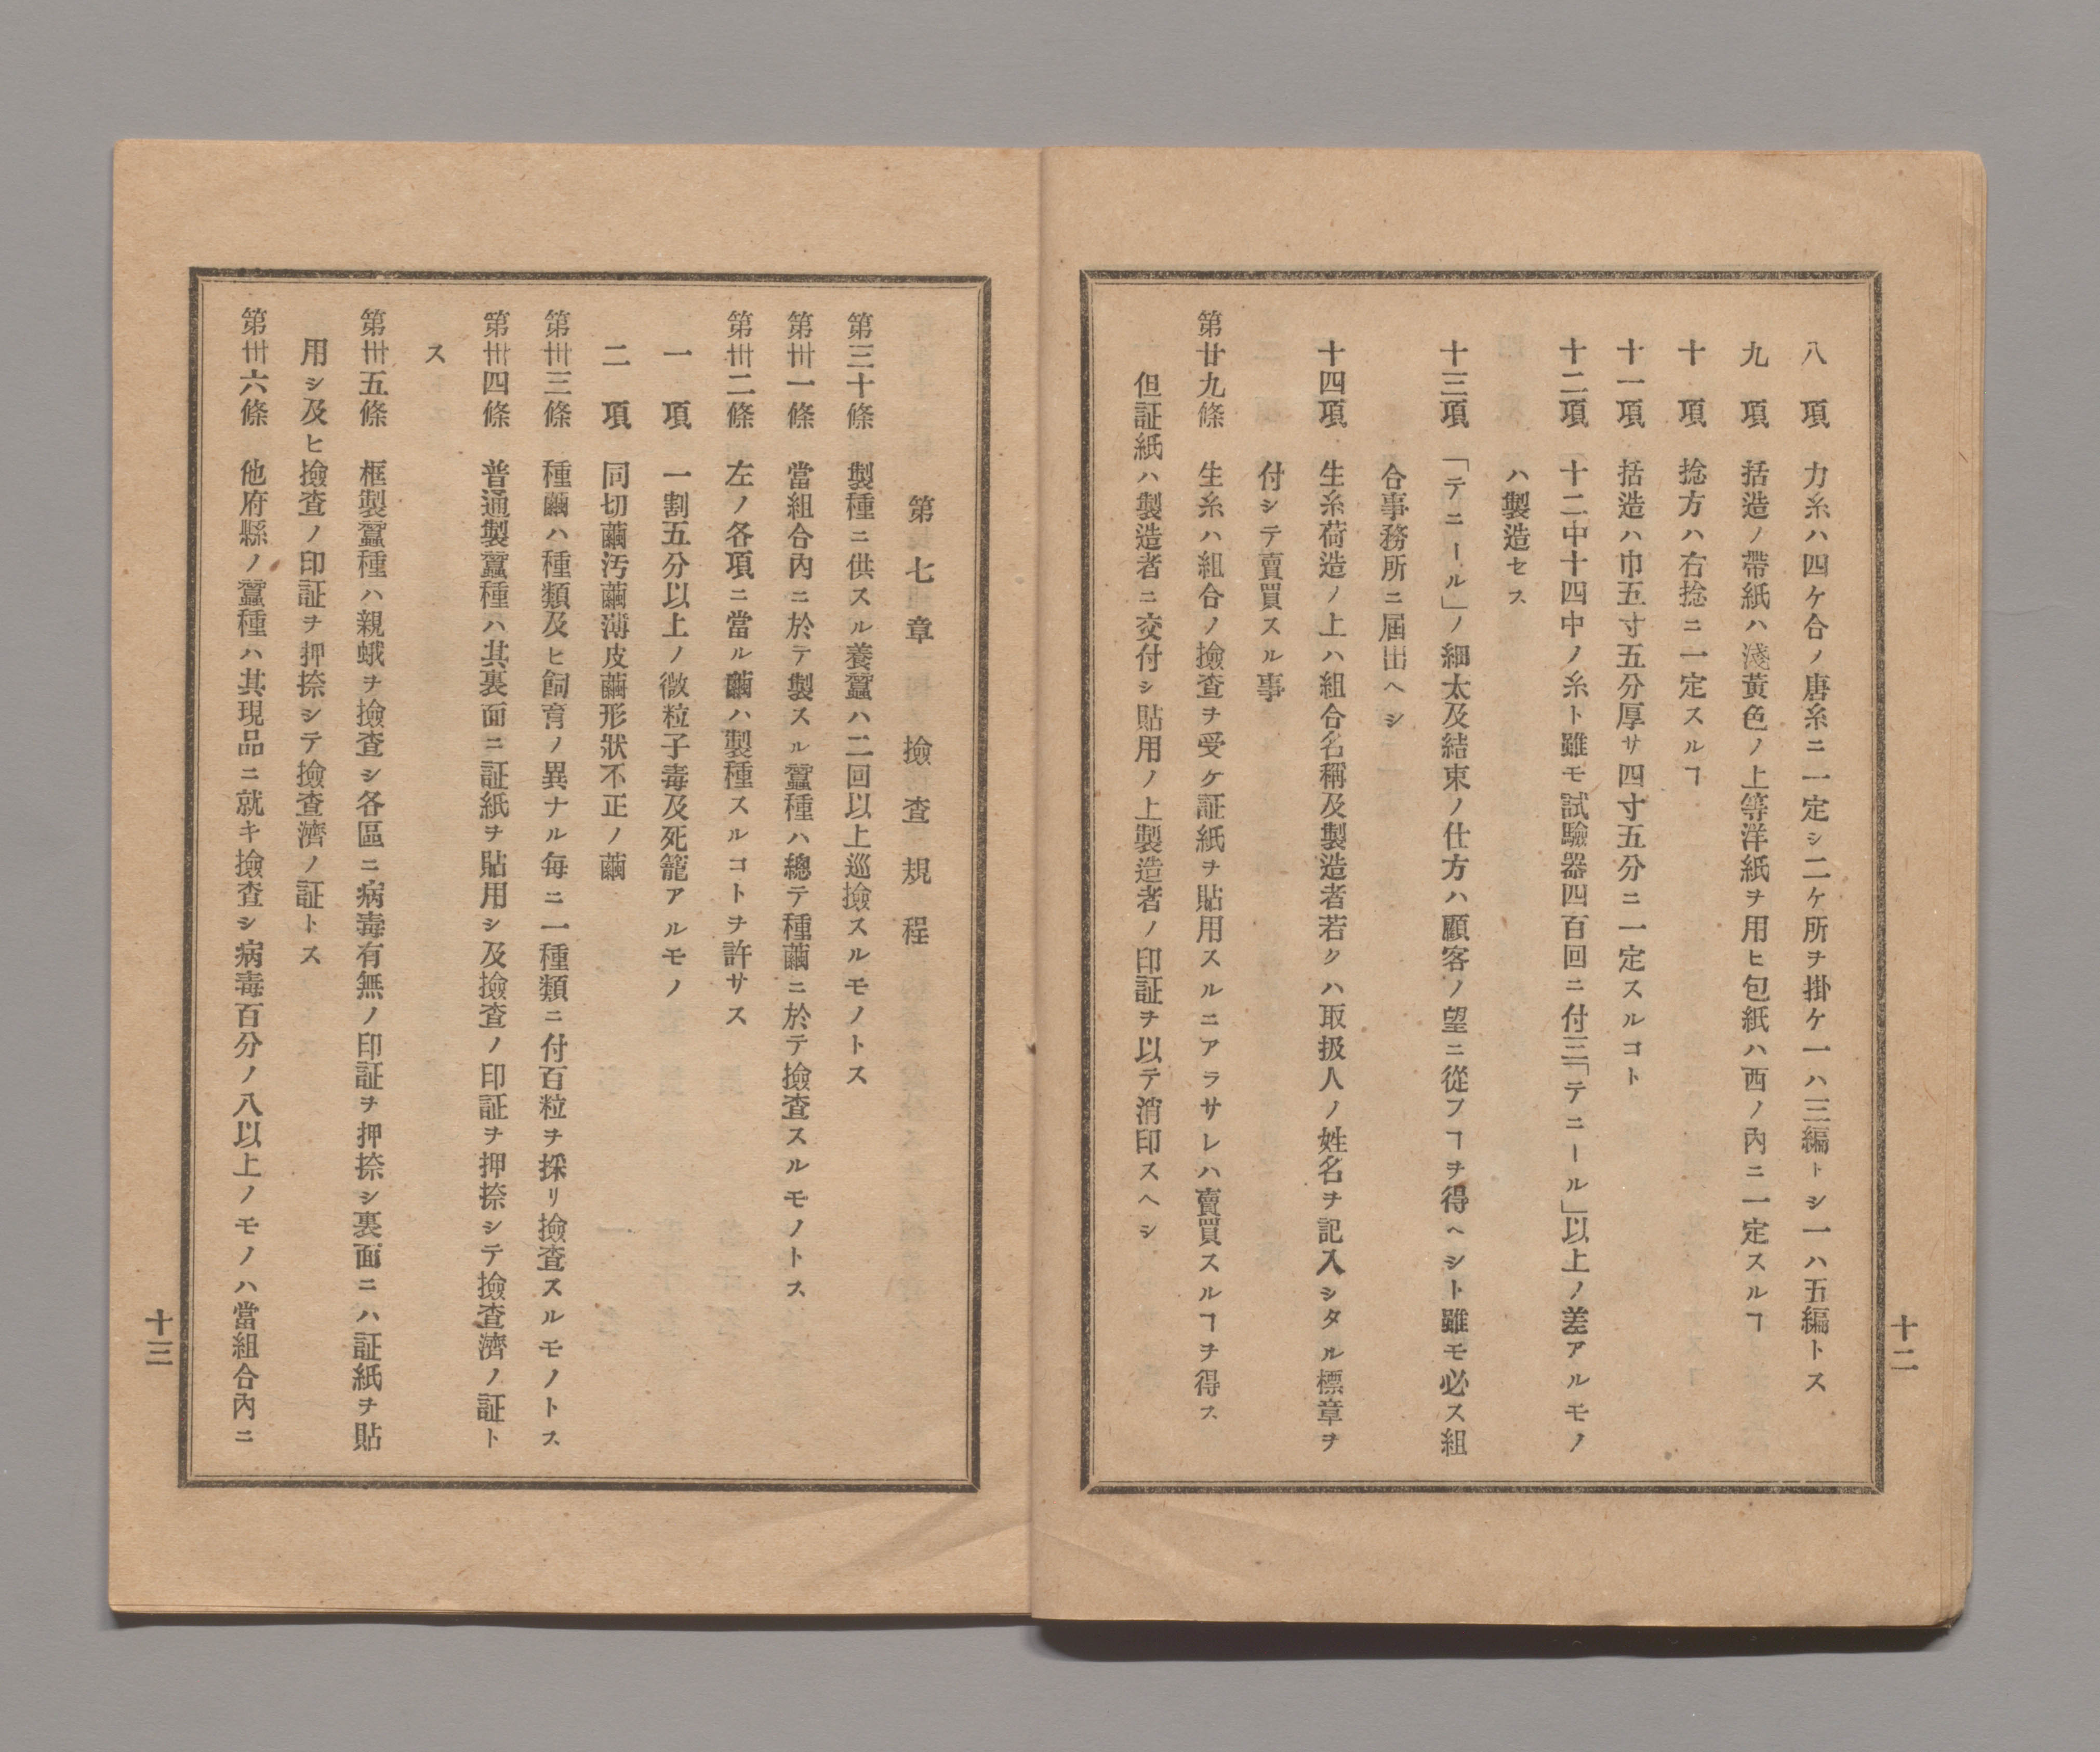 十二
八　項　力糸ハ四ケ合ノ唐糸ニ一定シ二ケ所ヲ掛ケ一ハ三編トシ一ハ五編トス
九　項　括造ノ帶紙ハ淺黃色ノ上等洋紙ヲ用ヒ包紙ハ西ノ內ニ一定スルヿ
十　項　捻方ハ右捻ニ一定スルヿ
十一項　括造ハ巾五寸五分厚サ四寸五分ニ一定スルコト
十二項　十二中十四中ノ糸ト雖モ試驗器四百回ニ付三「テニール」以上ノ差アルモノ
ハ製造セス
十三項　「テニール」ノ細太及結束ノ仕方ハ顧客ノ望ニ從フヿヲ得ヘシト雖モ必ス組
合事務所ニ屆出ヘシ
十四項　生糸荷造ノ上ハ組合名稱及製造者若クハ取扱人ノ姓名ヲ記入シタル標章ヲ
付シテ賣買スル事
第廿九條　生糸ハ組合ノ撿查ヲ受ケ証紙ヲ貼用スルニアラサレハ賣買スルヿヲ得ス
但証紙ハ製造者ニ交付シ貼用ノ上製造者ノ印証ヲ以テ消印スヘシ
第七章　撿查規程
第三十條　製種ニ供スル養蠶ハ二回以上巡撿スルモノトス
第卅一條　當組合內ニ於テ製スル蠶種ハ總テ種繭ニ於テ撿查スルモノトス
第卅二條　左ノ各項ニ當ル繭ハ製種スルコトヲ許サス
一　項　一割五分以上ノ微粒子毒及死籠アルモノ
二　項　同切繭汚繭薄皮繭形狀不正ノ繭
第卅三條　種繭ハ種類及ヒ飼育ノ異ナル每ニ一種類ニ付百粒ヲ採リ撿查スルモノトス
第卅四條　普通製蠶種ハ其裏面ニ証紙ヲ貼用シ及撿查ノ印証ヲ押捺シテ撿查濟ノ証ト
ス
第卅五條　框製蠶種ハ親蛾ヲ撿查シ各區ニ病毒有無ノ印証ヲ押捺シ裏面ニハ証紙ヲ貼
用シ及ヒ撿查ノ印証ヲ押捺シテ撿查濟ノ証トス
第卅六條　他府縣ノ蠶種ハ其現品ニ就キ撿查シ病毒百分ノ八以上ノモノハ當組合內ニ
十三